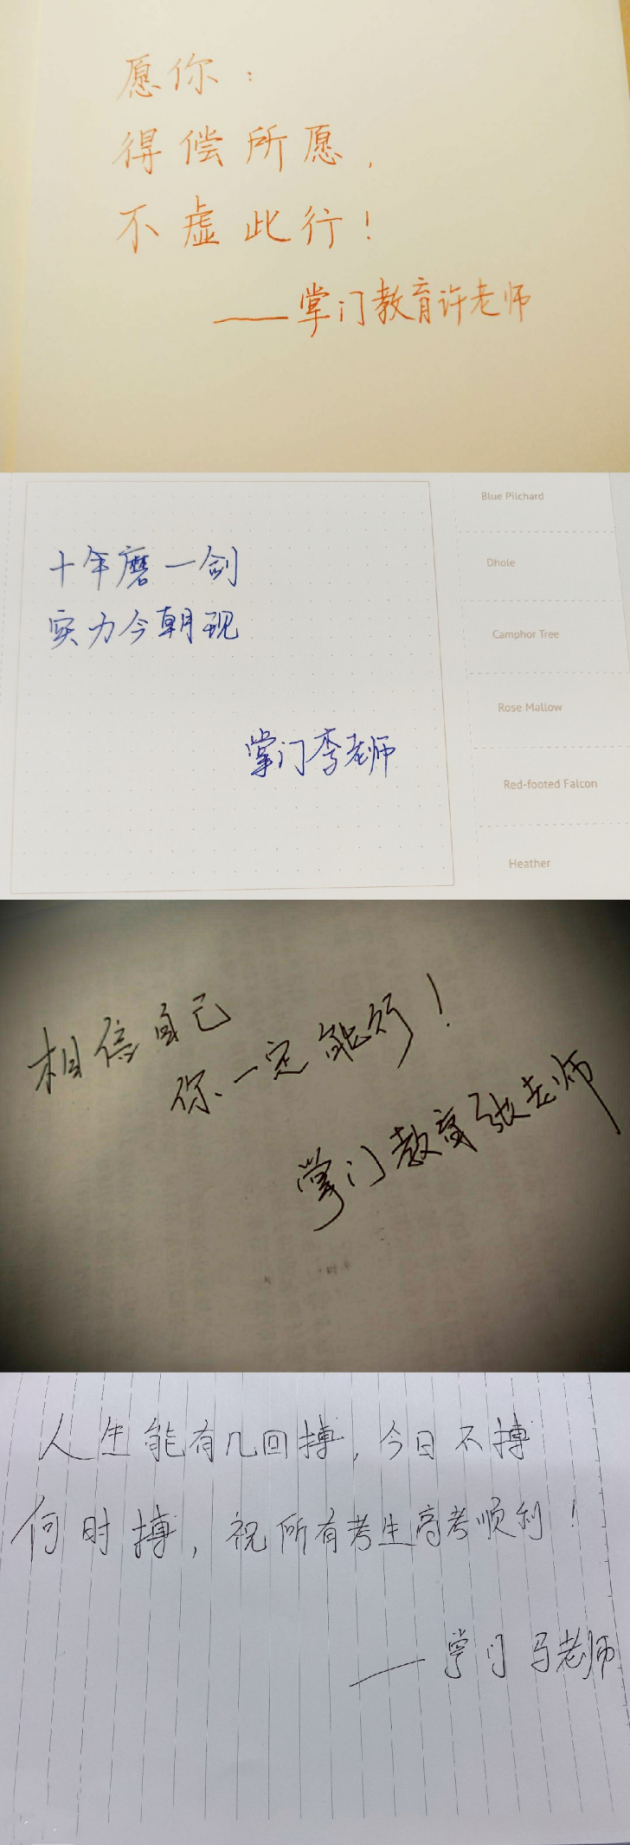 愿你：
得偿所愿，
不虚此行！
——掌门教育许老师
Blue Pilchard
Dhole
Camphor Tree
Rose Mallow
Red-footed Falcon
Heather
十年磨一剑
实力今朝现
掌门李老师
相信自己
你一定能行！
掌门教育张老师
人生能有几回搏，今日不搏
何时搏，祝所有考生高考顺利！
——掌门马老师